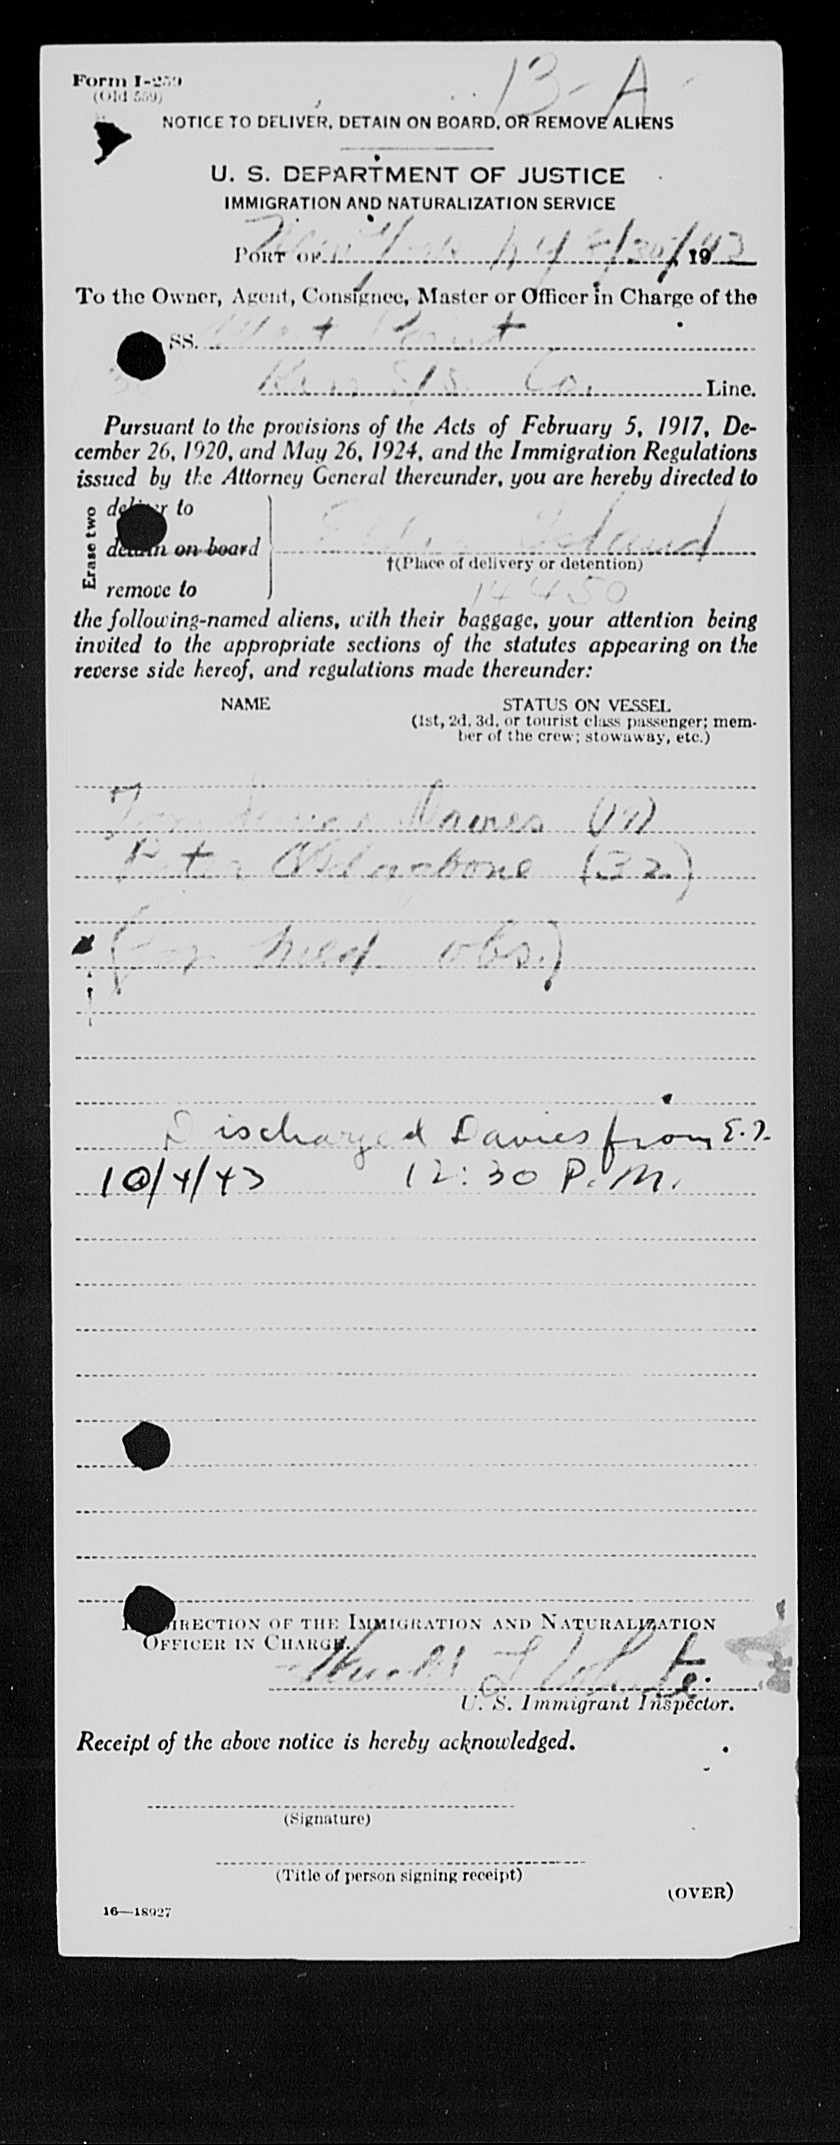 13-A
Form I-259
(Old 559)
NOTICE TO DELIVER, DETAIN ON BOARD, OR REMOVE ALIENS
U. S. DEPARTMENT OF JUSTICE
IMMIGRATION AND NATURALIZATION SERVICE
PORT OF New York NY 19 43
To the Owner, Agent, Consignee, Master or Officer in Charge of the
SS.
Co. Line.
Pursuant to the provisions of the Acts of February 5, 1917, De-
cember 26, 1920, and May 26, 1924, and the Immigration Regulations
issued by the Attorney General thereunder, you are hereby directed to
Erase two
deliver to
detain on board Ellis Island
†(Place of delivery or detention)
remove to 14450
the following-named aliens, with their baggage, your attention being
invited to the appropriate sections of the statutes appearing on the
reverse side hereof, and regulations made thereunder:
NAME STATUS ON VESSEL
(1st, 2d, 3d, or tourist class passenger; mem-
ber of the crew; stowaway, etc.)
Davies
Peter (32)
(for med. obs.)
Discharged Davies from E.I.
10/4/43 12:30 P.M.
DIRECTION OF THE IMMIGRATION AND NATURALIZATION
OFFICER IN CHARGE.
U. S. Immigrant Inspector.
Receipt of the above notice is hereby acknowledged.
(Signature)
(Title of person signing receipt)
(OVER)
16—18927